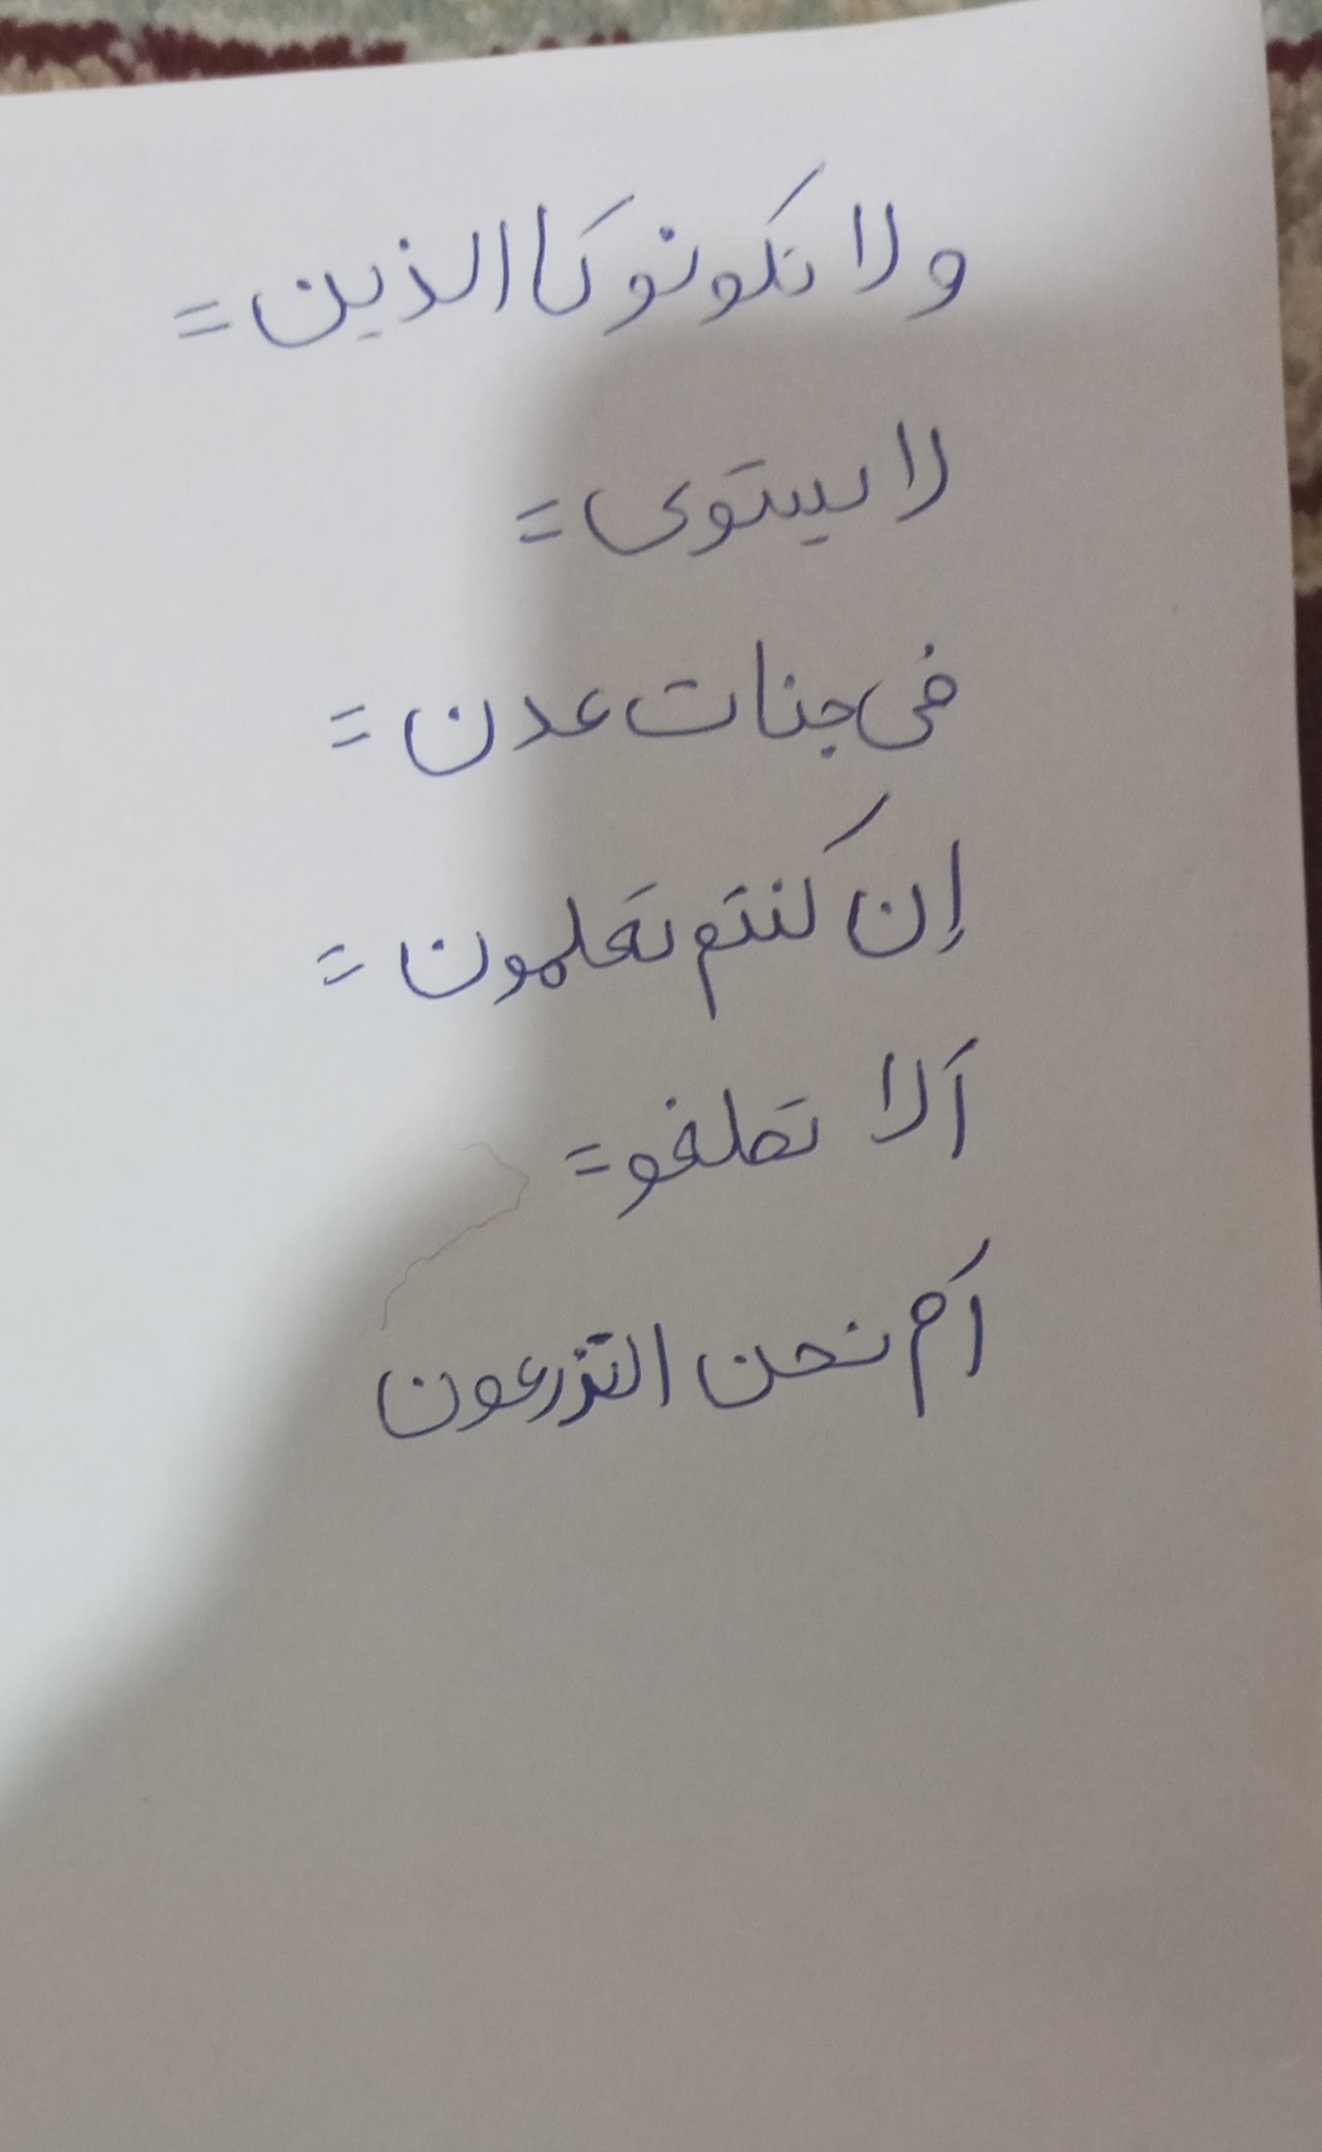 ولا تكونو كا الذين =
لا يستوى =
فى جنات عدن =
إن كنتم تعلمون =
ألا تطغو =
أم نحن الزرعون